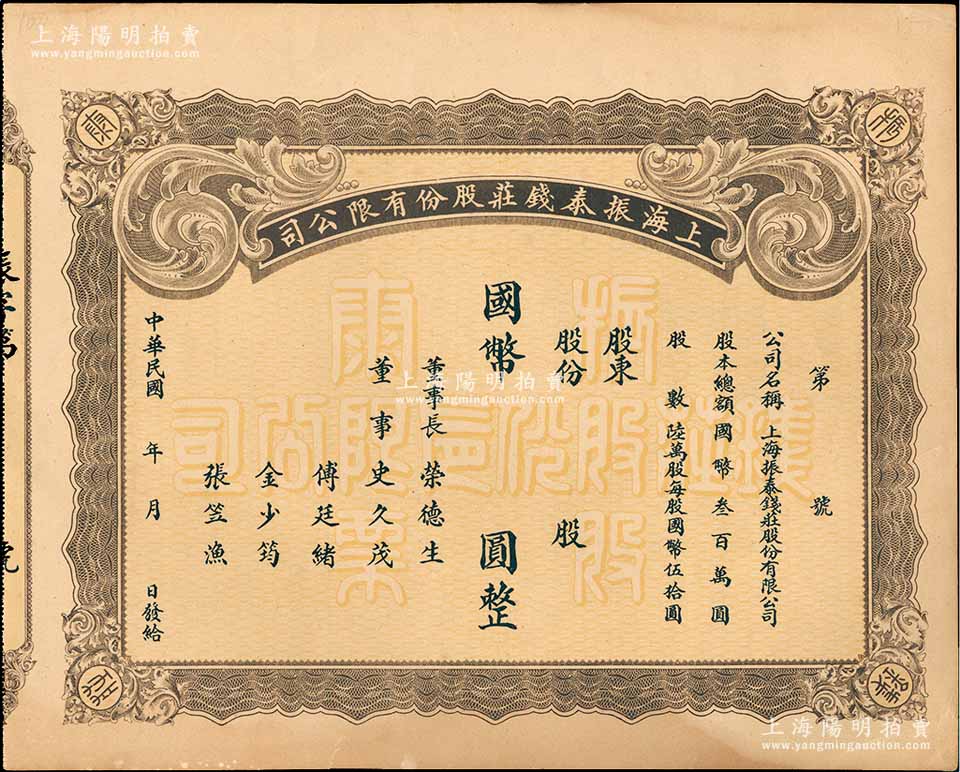 上海陽明拍賣
www.yangmingauction.com
上海振泰錢莊股份有限公司
第 號
公司名稱 上海振泰錢莊股份有限公司
股本總額 國幣叁百萬圓
股數 陸萬股每股國幣伍拾圓
股東
股份 股
國幣 圓整
董事長 榮德生
董事 史久茂
傅廷緒
金少筠
張笠漁
中華民國 年 月 日發給
上海陽明拍賣
www.yangmingauction.com
上海陽明拍賣
www.yangmingauction.com